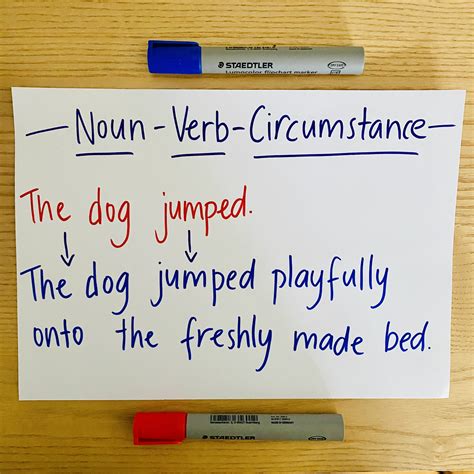 STAEDTLER
Lumocolor flipchart marker
— Noun - Verb - Circumstance —
The dog jumped.
The dog jumped playfully
onto the freshly made bed.
STAEDTLER